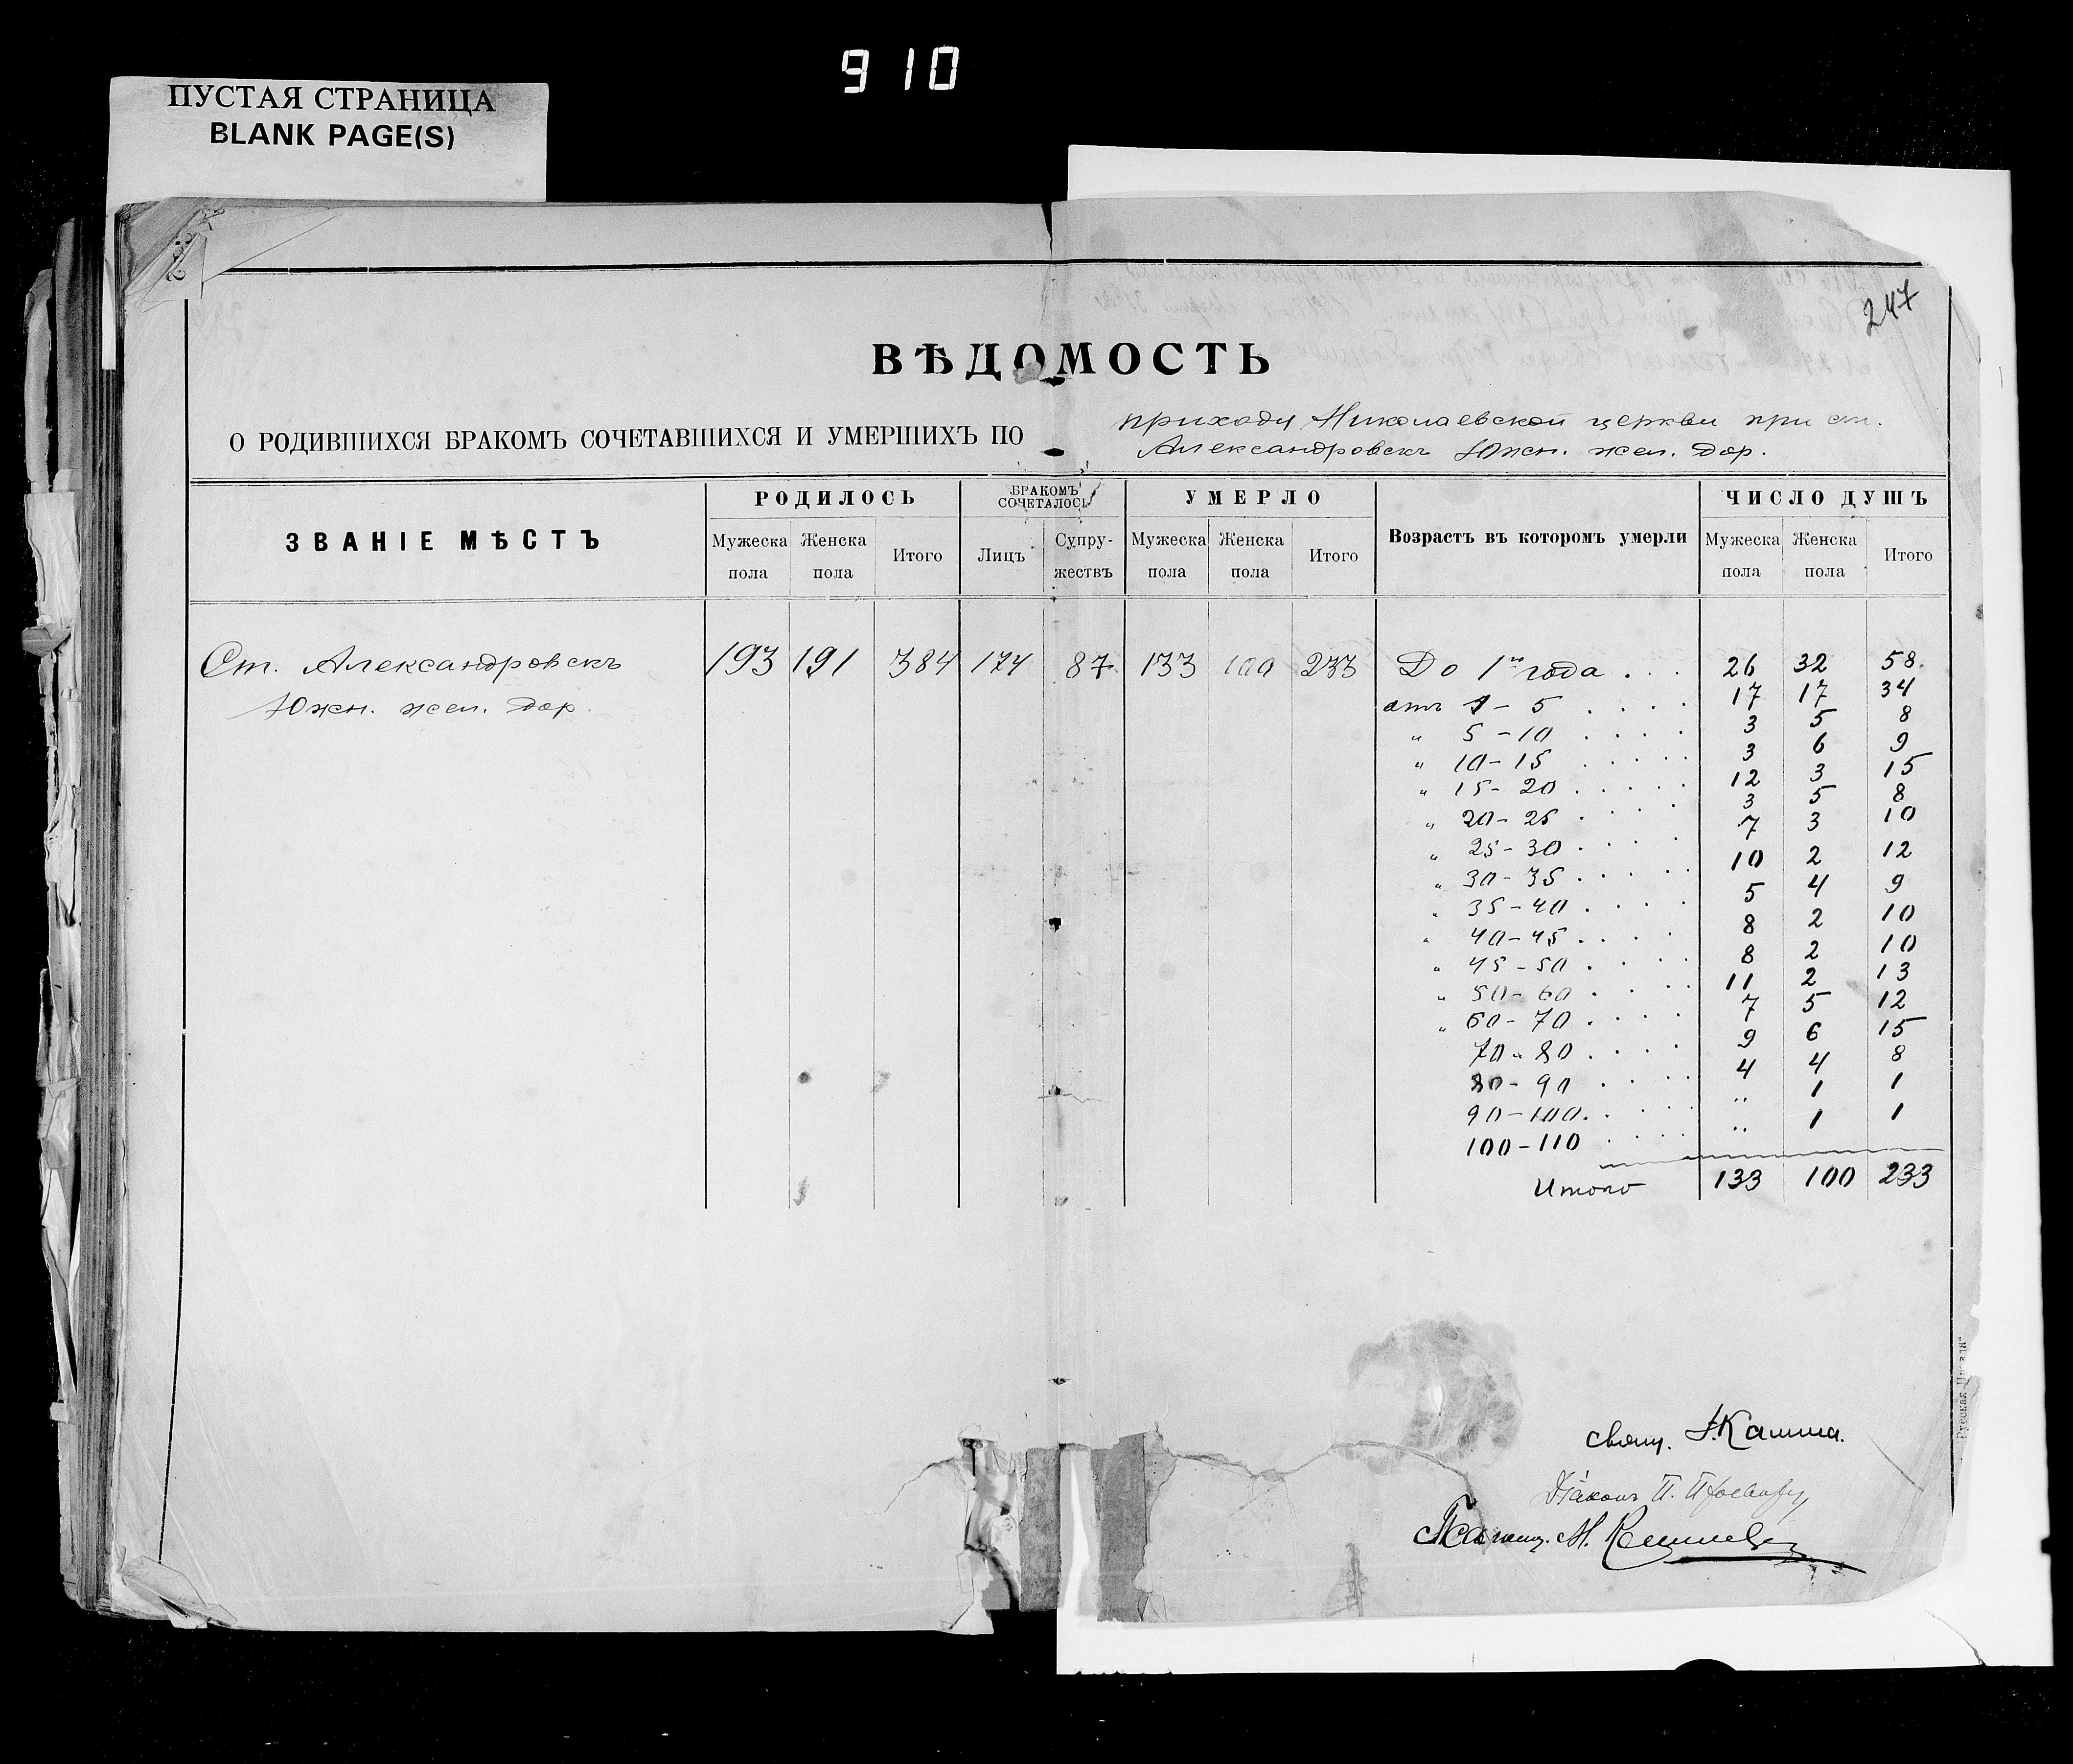 910
ПУСТАЯ СТРАНИЦА
BLANK PAGE(S)
247
ВѢДОМОСТЬ
О РОДИВШИХСЯ БРАКОМЪ СОЧЕТАВШИХСЯ И УМЕРШИХЪ ПО приходу Николаевской церкви при ст.
Александровскъ Южн. жел. дор.
ЗВАНІЕ МѢСТЪ РОДИЛОСЬ БРАКОМЪ СОЧЕТАЛОСЬ УМЕРЛО Возрастъ въ которомъ умерли ЧИСЛО ДУШЪ
Мужеска пола Женска пола Итого Лицъ Супружествъ Мужеска пола Женска пола Итого Мужеска пола Женска пола Итого
Ст. Александровскъ 193 191 384 174 87 133 100 233 До 1го года . . . 26 32 58.
Южн. жел. дор. отъ 1 - 5 . . . . 17 17 34
" 5 - 10 . . . . 3 5 8
" 10 - 15 . . . . . 3 6 9
" 15 - 20 . . . . . 12 3 15
" 20 - 25 . . . . 3 5 8
" 25 - 30 . . . . 7 3 10
" 30 - 35 . . . . . 10 2 12
" 35 - 40 . . . . 5 4 9
" 40 - 45 . . . . 8 2 10
" 45 - 50 . . . . 8 2 10
" 50 - 60 . . . . 11 2 13
" 60 - 70 . . . . 7 5 12
70 - 80 . . . . 9 6 15
80 - 90 . . . . 4 4 8
90 - 100 . . . . " 1 1
100 - 110 . . . . " 1 1
Итого 133 100 233
свящ.
Діаконъ П.
Псаломщ. М.